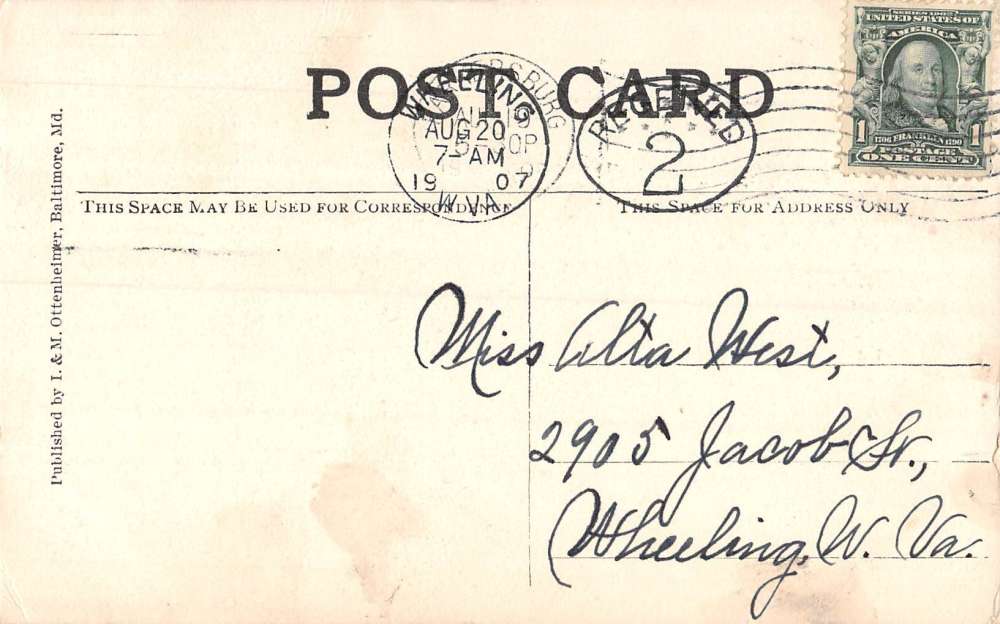 SERIES 1902
UNITED STATES OF
AMERICA
1 1706 FRANKLIN 1790 1
POSTAGE
ONE CENT
POST CARD
WHEELING
AUG 20
7-AM
1907
W.VA.
RECEIVED
2
THIS SPACE MAY BE USED FOR CORRESPONDENCE
THIS SPACE FOR ADDRESS ONLY
Published by I. & M. Ottenheimer, Baltimore, Md.
Miss Alta West,
2905 Jacob St.,
Wheeling, W. Va.